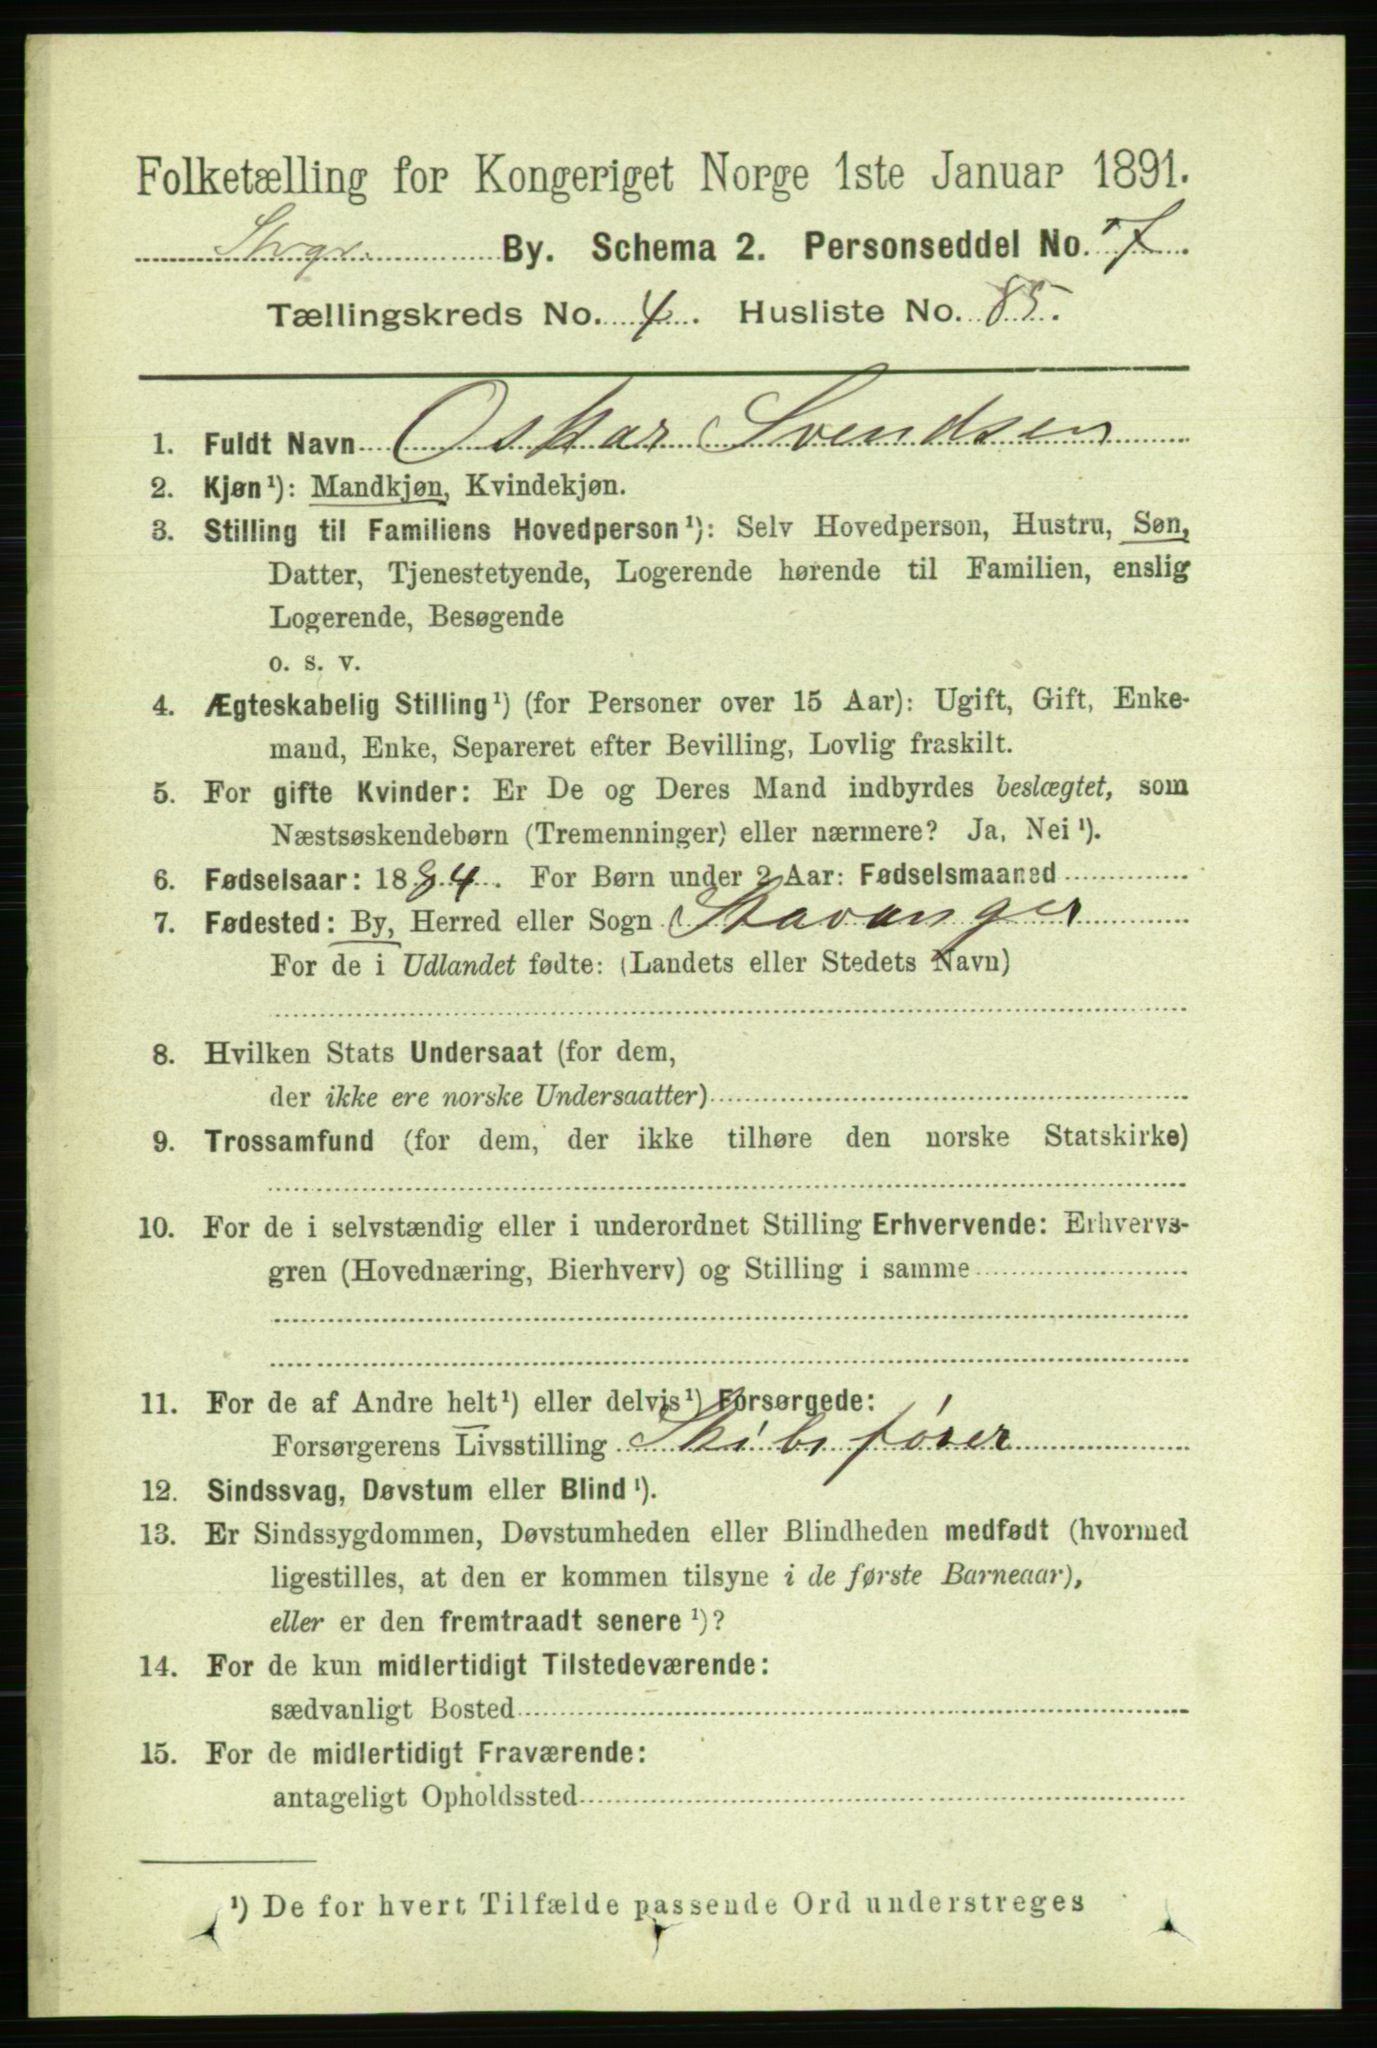 Folketælling for Kongeriget Norge 1ste Januar 1891.
Stvgr. By. Schema 2. Personseddel No. 7.
Tællingskreds No. 4. Husliste No. 85.
1. Fuldt Navn Oskar Svendsen
2. Kjøn¹): Mandkjøn, Kvindekjøn.
3. Stilling til Familiens Hovedperson¹): Selv Hovedperson, Hustru, Søn,
Datter, Tjenestetyende, Logerende hørende til Familien, enslig
Logerende, Besøgende
o. s. v.
4. Ægteskabelig Stilling¹) (for Personer over 15 Aar): Ugift, Gift, Enke-
mand, Enke, Separeret efter Bevilling, Lovlig fraskilt.
5. For gifte Kvinder: Er De og Deres Mand indbyrdes beslægtet, som
Næstsøskendebørn (Tremenninger) eller nærmere? Ja, Nei¹).
6. Fødselsaar: 1884. For Børn under 2 Aar: Fødselsmaaned
7. Fødested: By, Herred eller Sogn Stavanger
For de i Udlandet fødte: (Landets eller Stedets Navn)
8. Hvilken Stats Undersaat (for dem,
der ikke ere norske Undersaatter)
9. Trossamfund (for dem, der ikke tilhøre den norske Statskirke)
10. For de i selvstændig eller i underordnet Stilling Erhvervende: Erhvervs-
gren (Hovednæring, Bierhverv) og Stilling i samme
11. For de af Andre helt¹) eller delvis¹) Forsørgede:
Forsørgerens Livsstilling Skibsfører
12. Sindssvag, Døvstum eller Blind¹).
13. Er Sindssygdommen, Døvstumheden eller Blindheden medfødt (hvormed
ligestilles, at den er kommen tilsyne i de første Barneaar),
eller er den fremtraadt senere¹)?
14. For de kun midlertidigt Tilstedeværende:
sædvanligt Bosted
15. For de midlertidigt Fraværende:
antageligt Opholdssted
¹) De for hvert Tilfælde passende Ord understreges